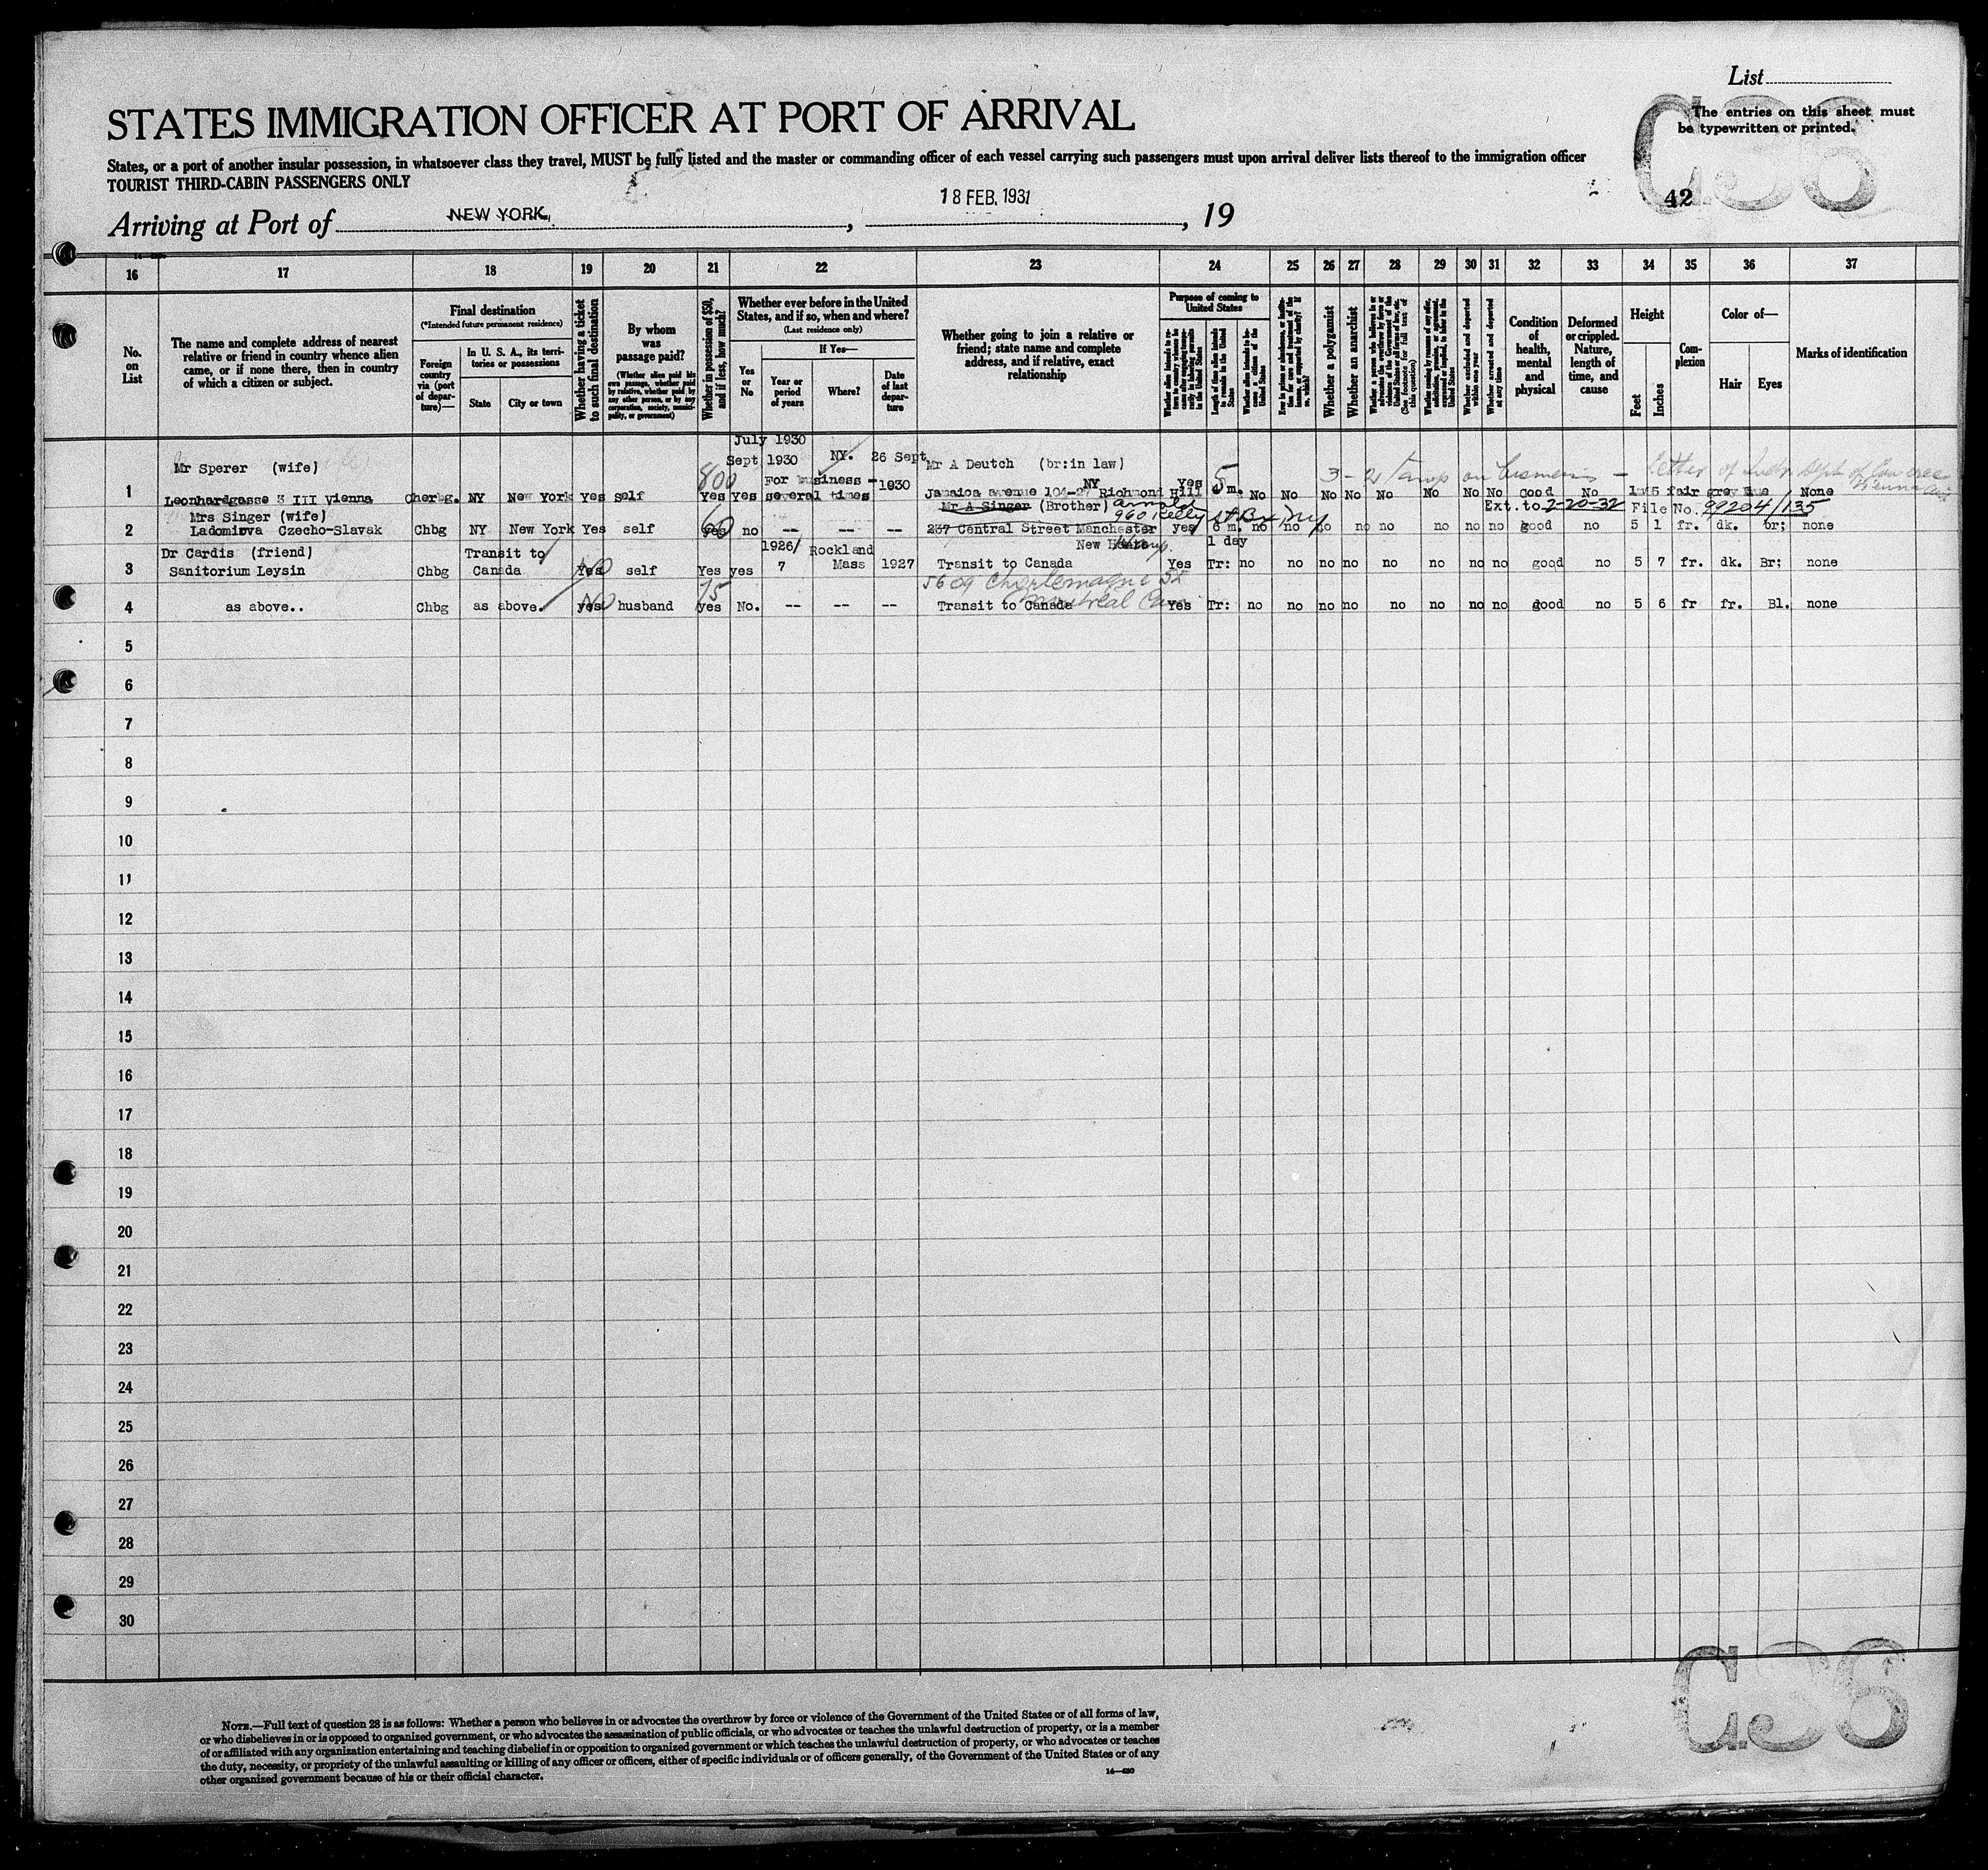 List
The entries on this sheet must
be typewritten or printed.
STATES IMMIGRATION OFFICER AT PORT OF ARRIVAL
States, or a port of another insular possession, in whatsoever class they travel, MUST be fully listed and the master or commanding officer of each vessel carrying such passengers must upon arrival deliver lists thereof to the immigration officer
TOURIST THIRD-CABIN PASSENGERS ONLY
42
Arriving at Port of NEW YORK, , 18 FEB. 1931 , 19
16 17 18 19 20 21 22 23 24 25 26 27 28 29 30 31 32 33 34 35 36 37
No.
on
List
The name and complete address of nearest
relative or friend in country whence alien
came, or if none there, then in country
of which a citizen or subject.
Final destination
(*Intended future permanent residence)
Foreign
country
via (port
of depar-
ture)—
In U. S. A., its terri-
tories or possessions
State
City or town
Whether having a ticket
to such final destination
By whom
was
passage paid?
(Whether alien paid his
own passage, whether paid
by relative, whether paid by
any other person, or by any
corporation, society, munici-
pality, or government)
Whether in possession of $50,
and if less, how much?
Whether ever before in the United
States, and if so, when and where?
(Last residence only)
Yes
or
No
If Yes—
Year or
period
of years
Where?
Date
of last
depar-
ture
Whether going to join a relative or
friend; state name and complete
address, and if relative, exact
relationship
Purpose of coming to
United States
Length of time alien intends
to remain in the United
States
Whether alien intends to be-
come a citizen of the
United States
Whether a polygamist
Whether an anarchist
Whether excluded and deported
within one year
Whether arrested and deported
at any time
Condition
of
health,
mental
and
physical
Deformed
or crippled.
Nature,
length of
time, and
cause
Height
Feet
Inches
Com-
plexion
Color of—
Hair
Eyes
Marks of identification
July 1930
Mr Sperer (wife) Sept 1930 NY. 26 Sept Mr A Deutch (br:in law)
800 For business - 1930 NY Yes 5
1 Leonhardgasse 3 III Vienna Cherbg. NY New York Yes self Yes Yes several times Jamaica avenue 104-27 Richmond Hill m. No No No No No No No No Good No fair grey None
Mrs Singer (wife) 60 Mr A Singer (Brother) Arnold Ext. to 2-20-32 File No. 99204/135
960 Kelly St Bx NY
2 Ladomirva Czecho-Slavak Chbg NY New York Yes self yes no -- -- -- 237 Central Street Manchester yes 6 m. no no no no no no no no good no 5 1 fr. dk. br; none
Dr Cardis (friend) Transit to 1926/ Rockland New 1 day
3 Sanitorium Leysin Chbg Canada Yes NO self Yes yes 7 Mass 1927 Transit to Canada Yes Tr: no no no no no no no no good no 5 7 fr. dk. Br; none
75 5609 Charlemagne St
Montreal Can
4 as above.. Chbg as above. yes NO husband yes No. -- -- -- Transit to Canada Yes Tr: no no no no no no no no good no 5 6 fr fr. Bl. none
5
6
7
8
9
10
11
12
13
14
15
16
17
18
19
20
21
22
23
24
25
26
27
28
29
30
NOTE.—Full text of question 28 is as follows: Whether a person who believes in or advocates the overthrow by force or violence of the Government of the United States or of all forms of law,
or who disbelieves in or is opposed to organized government, or who advocates the assassination of public officials, or who advocates or teaches the unlawful destruction of property, or is a member
of or affiliated with any organization entertaining and teaching disbelief in or opposition to organized government or which teaches the unlawful destruction of property, or who advocates or teaches
the duty, necessity, or propriety of the unlawful assaulting or killing of any officer or officers, either of specific individuals or of officers generally, of the Government of the United States or of any
other organized government because of his or their official character.